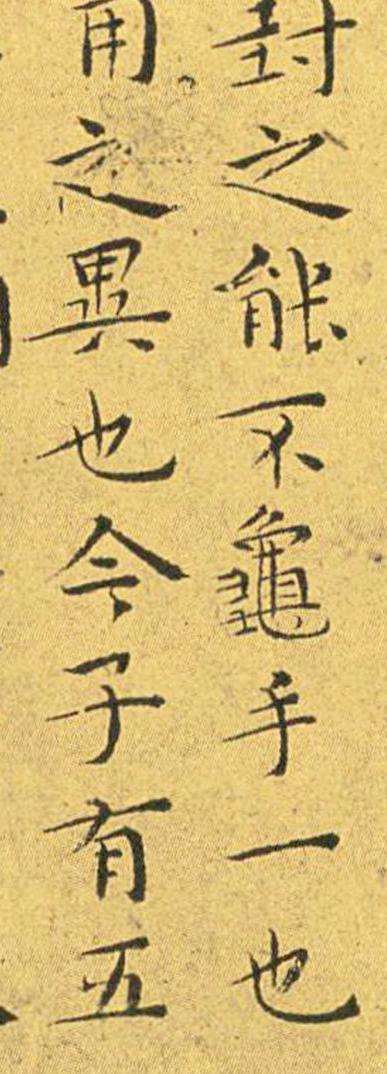 封之能不龜手一也
用之異也今子有五